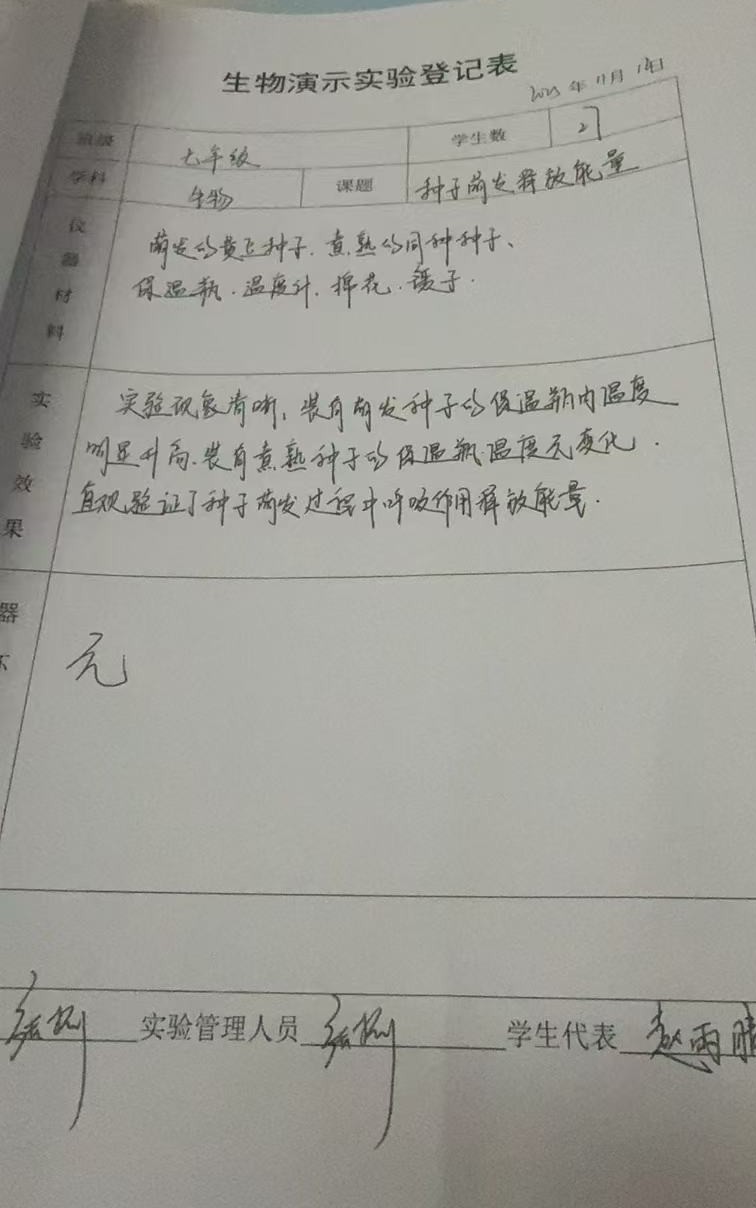 生物演示实验登记表
年11月
班级 七年级 学生数 27
学科 生物 课题 种子萌发释放能量
仪器材料
萌发的黄豆种子、煮熟的同种种子、
保温瓶、温度计、棉花、镊子.
实验效果
实验现象清晰,装有萌发种子的保温瓶内温度
明显升高,装有煮熟种子的保温瓶温度无变化.
直观验证了种子萌发过程中呼吸作用释放能量.
器
无
实验管理人员 学生代表 赵雨晴